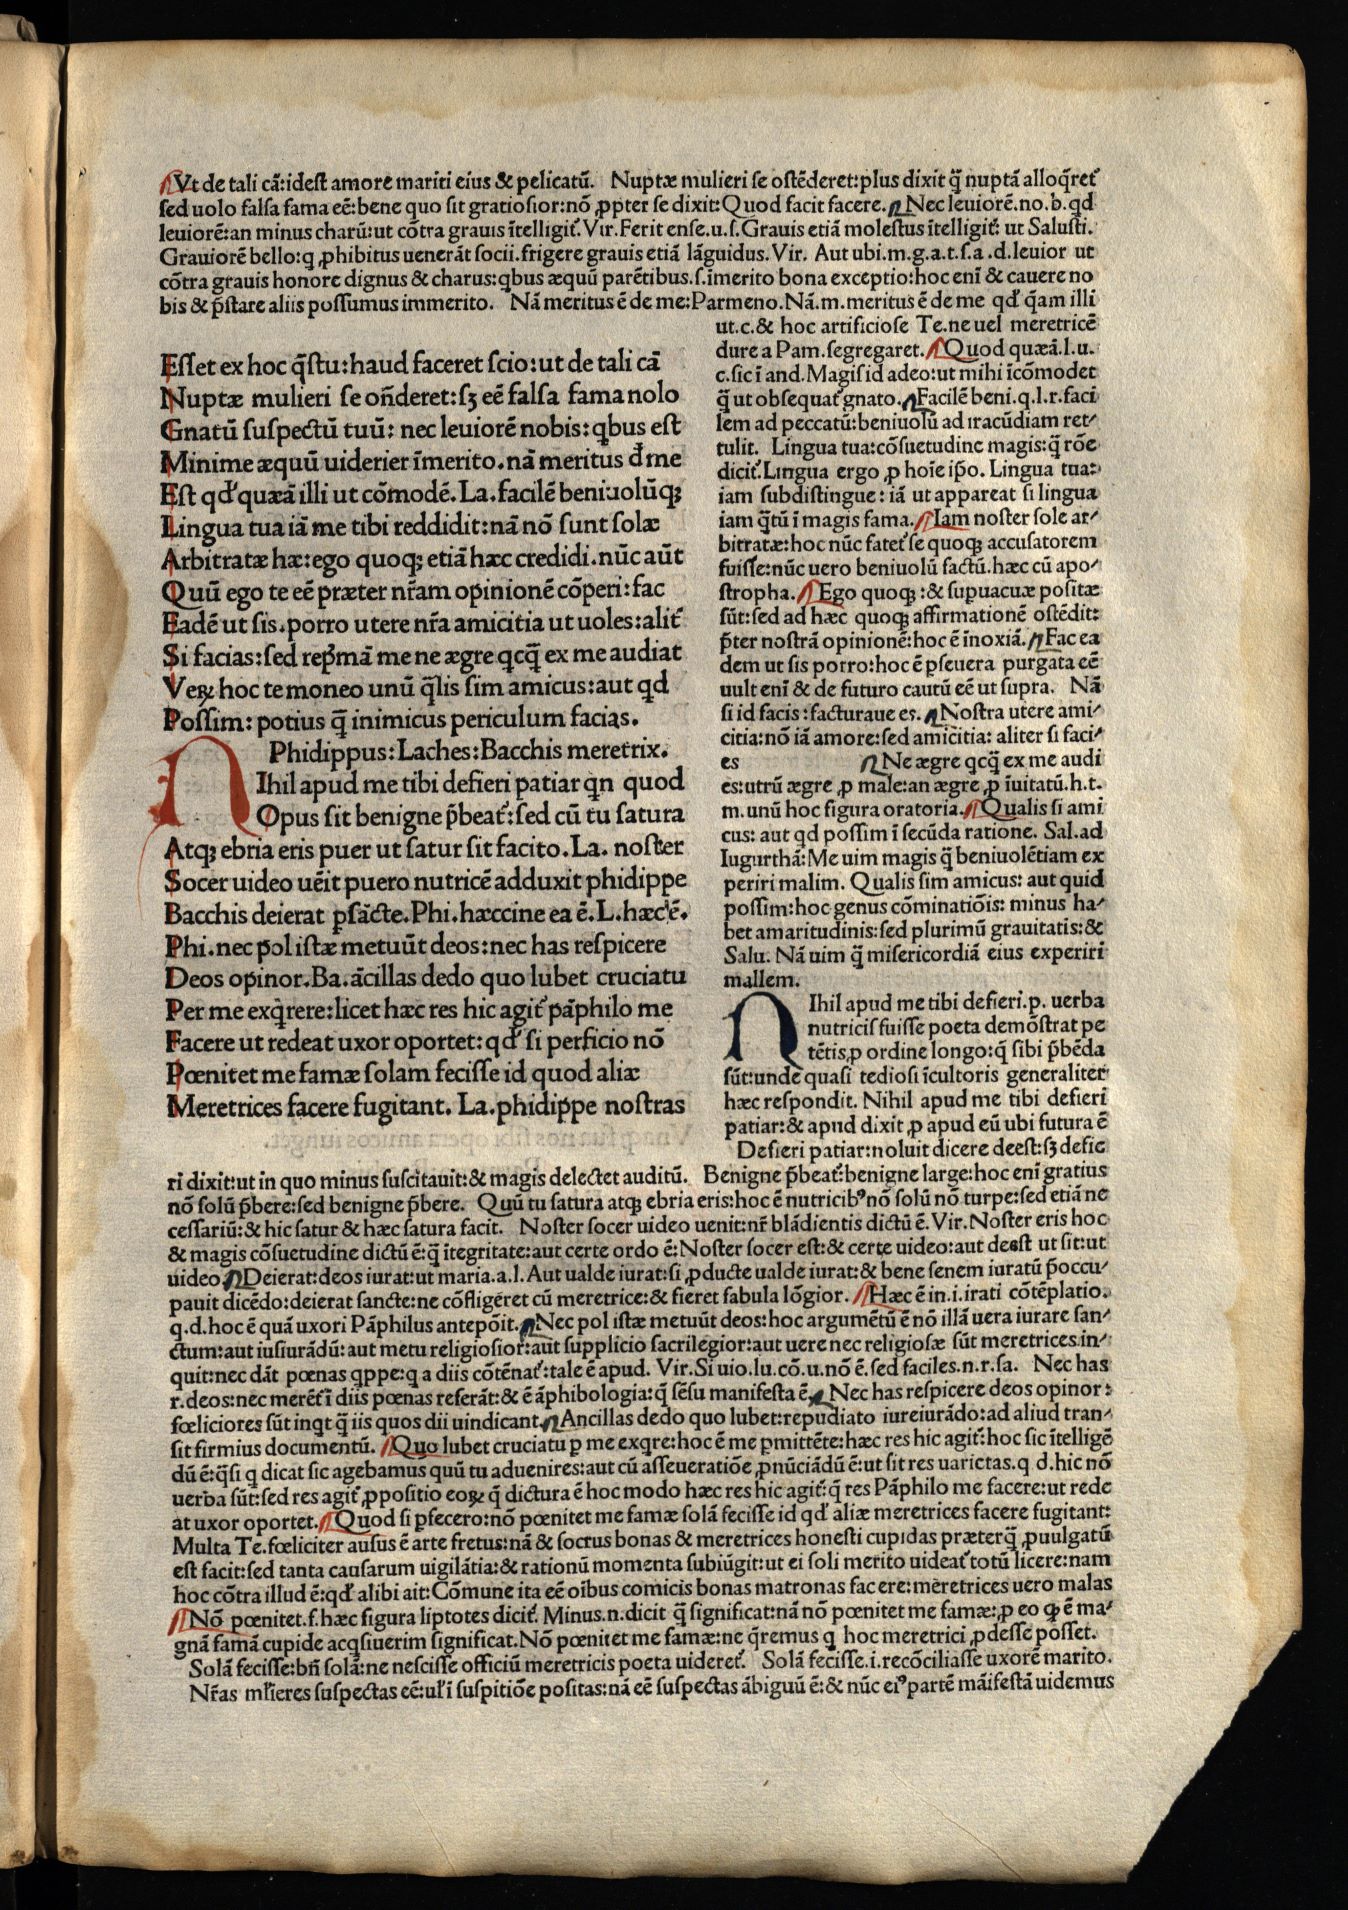 Vt de tali cã:idest amore mariti eius & pelicatũ. Nuptæ mulieri se ostẽderet:plus dixit q̃ nuptã alloq̃ret᷑
sed uolo falsa fama eẽ:bene quo sit gratiosior:nõ ꝓpter se dixit:Quod facit facere. Nec leuiorẽ.no.b.qd
leuiorẽ:an minus charũ:ut cõtra grauis ĩtelligit᷑. Vir.Ferit ense.u.s.Grauis etiã molestus ĩtelligit᷑: ut Salusti.
Grauiorẽ bello:q ꝓhibitus uenerãt socii.frigere grauis etiã lãguidus.Vir. Aut ubi.m.g.a.t.s.a.d.leuior ut
cõtra grauis honore dignus & charus:qbus æquũ parẽtibus.s.ĩmerito bona exceptio:hoc enĩ & cauere no
bis & p̃stare aliis possumus immerito. Nã meritus ẽ de me:Parmeno.Nã.m.meritus ẽ de me qd᷑ q̃am illi
ut.c.& hoc artificiose Te.ne uel meretricẽ
dure a Pam.segregaret. Quod quæã.l.u.
c.sic ĩ and.Magis id adeo:ut mihi ĩcõmodet
q̃ ut obsequat᷑ gnato. Facilẽ beni.q.l.r.faci
lem ad peccatũ:beniuolũ ad iracũdiam ret-
tulit. Lingua tua:cõsuetudine magis:q̃ rõe
dicit᷑.Lingua ergo ꝓ hoĩe ip̃o. Lingua tua:
iam subdistingue: iã ut appareat si lingua
iam q̃tũ ĩ magis fama. Iam noster sole ar-
bitratæ:hoc nũc fatet᷑ se quoqꝫ accusatorem
fuisse:nũc uero beniuolũ factũ.hæc cũ apo-
stropha. Ego quoqꝫ:& supuacuæ positæ
sũt:sed ad hæc quoqꝫ affirmationẽ ostẽdit:
p̃ter nostrã opinionẽ:hoc ẽ ĩnoxiã. Fac ea
dem ut sis porro:hoc ẽ ꝑseuera purgata eẽ
uult enĩ & de futuro cautũ eẽ ut supra. Nã
si id facis:facturaue es. Nostra utere ami-
citia:nõ iã amore:sed amicitia: aliter si faci-
es Ne ægre qcq̃ ex me audi
es:utrũ ægre ꝓ male:an ægre ꝓ ĩuitatũ.h.t.
m.unũ hoc figura oratoria. Qualis si ami
cus: aut qd possim ĩ secũda ratione. Sal.ad
Iugurthã:Me uim magis q̃ beniuolẽtiam ex
periri malim. Qualis sim amicus: aut quid
possim:hoc genus cõminatiõis: minus ha-
bet amaritudinis:sed plurimũ grauitatis:&
Salu. Nã uim q̃ misericordiã eius experiri
mallem.
Esset ex hoc q̃stu:haud faceret scio:ut de tali cã
Nuptæ mulieri se oñderet:sꝫ eẽ falsa fama nolo
Gnatũ suspectũ tuũ: nec leuiorẽ nobis:qbus est
Minime æquũ uiderier ĩmerito.nã meritus d᷑ me
Est qd᷑ quæã illi ut cõmodẽ.La.facilẽ beniuolũqꝫ
Lingua tua iã me tibi reddidit:nã nõ sunt solæ
Arbitratæ hæ:ego quoqꝫ etiã hæc credidi.nũc aũt
Quũ ego te eẽ præter nr̃am opinionẽ cõperi:fac
Eadẽ ut sis.porro utere nr̃a amicitia ut uoles:alit᷑
Si facias:sed rep̃mã me ne ægre qcq̃ ex me audiat
Veꝝ hoc te moneo unũ q̃lis sim amicus:aut qd
Possim: potius q̃ inimicus periculum facias.
Phidippus:Laches:Bacchis meretrix.
NIhil apud me tibi defieri patiar qn quod
Opus sit benigne p̃beat᷑:sed cũ tu satura
Atqꝫ ebria eris puer ut satur sit facito.La. noster
Socer uideo uẽit puero nutricẽ adduxit phidippe
Bacchis deierat ꝑsãcte.Phi.hæccine ea ẽ.L.hæc ẽ.
Phi.nec pol istæ metuũt deos:nec has respicere
Deos opinor.Ba.ãcillas dedo quo lubet cruciatu
Per me exq̃rere:licet hæc res hic agit᷑ pãphilo me
Facere ut redeat uxor oportet:qd᷑ si perficio nõ
Pœnitet me famæ solam fecisse id quod aliæ
Meretrices facere fugitant. La.phidippe nostras
NIhil apud me tibi defieri.p. uerba
nutricis fuisse poeta demõstrat pe
tẽtis,ꝓ ordine longo:q̃ sibi p̃bẽda
sũt:unde quasi tediosi ĩcultoris generaliter
hæc respondit. Nihil apud me tibi defieri
patiar:& apud dixit ꝓ apud eũ ubi futura ẽ
Defieri patiar:noluit dicere deest:sꝫ defie
ri dixit:ut in quo minus suscitauit:& magis delectet auditũ. Benigne p̃beat᷑:benigne large:hoc enĩ gratius
nõ solũ p̃bere:sed benigne p̃bere. Quũ tu satura atqꝫ ebria eris:hoc ẽ nutricibꝰ nõ solũ nõ turpe:sed etiã ne
cessariũ:& hic satur & hæc satura facit. Noster socer uideo uenit:nr̃ blãdientis dictũ ẽ.Vir.Noster eris hoc
& magis cõsuetudine dictũ ẽ:q̃ ĩtegritate:aut certe ordo ẽ:Noster socer est:& certe uideo:aut deest ut sit:ut
uideo. Deierat:deos iurat:ut maria.a.l.Aut ualde iurat:si ꝓducte ualde iurat:& bene senem iuratũ p̃occu-
pauit dicẽdo:deierat sancte:ne cõfligeret cũ meretrice:& fieret fabula lõgior. Hæc ẽ in.i.irati cõtẽplatio.
q.d.hoc ẽ quã uxori Pãphilus antepõit. Nec pol istæ metuũt deos:hoc argumẽtũ ẽ nõ illã uera iurare san-
ctum:aut iusiurãdũ:aut metu religiosior:aut supplicio sacrilegior:aut uere nec religiosæ sũt meretrices.in-
quit:nec dãt pœnas qppe:q a diis cõtẽnat᷑:tale ẽ apud. Vir.Si uio.lu.cõ.u.nõ ẽ.sed faciles.n.r.sa. Nec has
r.deos:nec merẽt᷑ ĩ diis pœnas referãt:& ẽ ãphibologia:q̃ sẽsu manifesta ẽ. Nec has respicere deos opinor:
fœliciores sũt inqt q̃ iis quos dii uindicant. Ancillas dedo quo lubet:repudiato iureiurãdo:ad aliud tran-
sit firmius documentũ. Quo lubet cruciatu ꝑ me exqre:hoc ẽ me ꝑmittẽte:hæc res hic agit᷑:hoc sic ĩtelligẽ
dũ ẽ:q̃si q dicat sic agebamus quũ tu aduenires:aut cũ asseueratiõe ꝓnũciãdũ ẽ:ut sit res uarietas.q d.hic nõ
uerba sũt:sed res agit᷑ ꝓpositio eoꝝ q̃ dictura ẽ hoc modo hæc res hic agit᷑:q̃ res Pãphilo me facere:ut rede
at uxor oportet. Quod si ꝑfecero:nõ pœnitet me famæ solã fecisse id qd᷑ aliæ meretrices facere fugitant:
Multa Te.fœliciter ausus ẽ arte fretus:nã & socrus bonas & meretrices honesti cupidas præterq̃ ꝓuulgatũ
est facit:sed tanta causarum uigilãtia:& rationũ momenta subiũgit:ut ei soli merito uideat᷑ totũ licere:nam
hoc cõtra illud ẽ:qd᷑ alibi ait:Cõmune ita eẽ oĩbus comicis bonas matronas facere:meretrices uero malas
Nõ pœnitet.f.hæc figura liptotes dicit᷑. Minus.n.dicit q̃ significat:nã nõ pœnitet me famæ:ꝓ eo ꝙ ẽ ma-
gnã famã cupide acqsiuerim significat.Nõ pœnitet me famæ:ne q̃remus q hoc meretrici ꝓdesse posset.
Solã fecisse:bñ solã:ne nescisse officiũ meretricis poeta uideret᷑. Solã fecisse.i.recõciliasse uxorẽ marito.
Nr̃as ml᷑ieres suspectas eẽ:ul᷑ ĩ suspitiõe positas:nã eẽ suspectas ãbiguũ ẽ:& nũc eiꝰ partẽ mãifestã uidemus